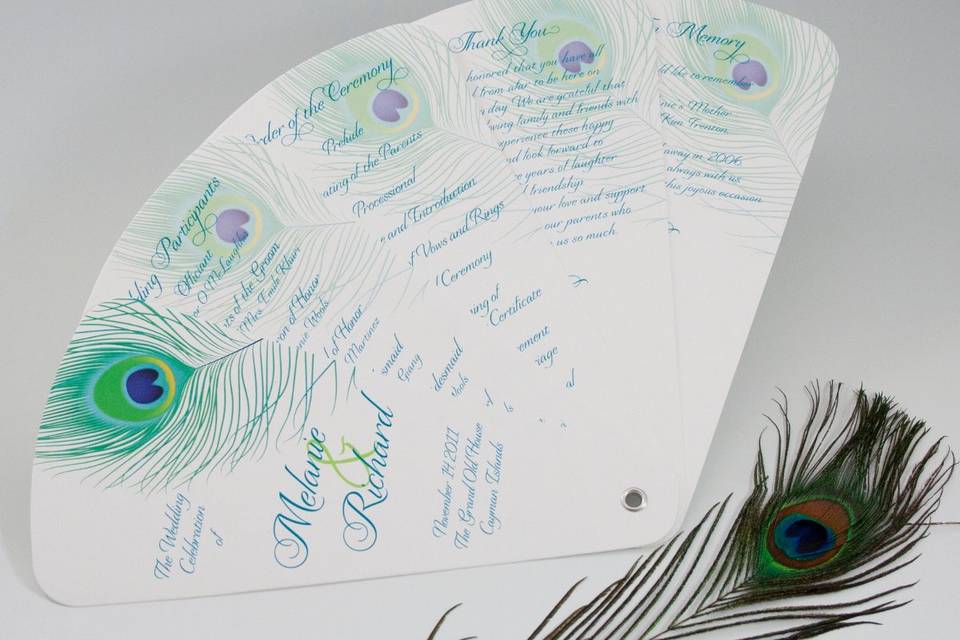 The Wedding
Celebration
of
Melanie
&
Richard
November 14, 2011
The Grand Old House
Cayman Islands
Participants
Officiant
O'McLaughlin
of the Groom
Mrs. Emile Khouri
of Honor
Wools
of Honor
Martinez
Giang
of the Ceremony
Prelude
of the Parents
Processional
and Introduction
Vows and Rings
Ceremony
of
Certificate
Thank You
honored that you have all
from afar to be here on
day. We are grateful that
family and friends with
experience these happy
and look forward to
years of laughter
friendship
your love and support
our parents who
us so much.
Memory
like to remember
Mother
Ken Trenton
away in 2006
always with us
this joyous occasion